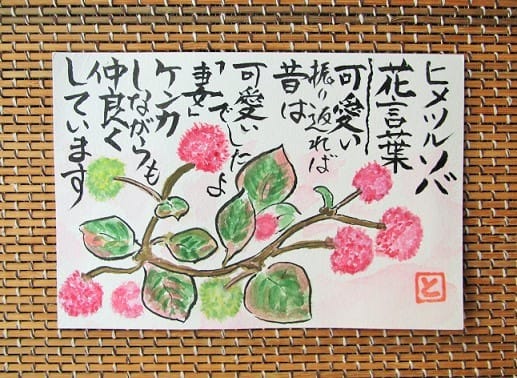 ヒメツルソバ
花言葉
可愛い
振り返れば
昔は
可愛い
でしたよ
妻に
ケンカ
しながらも
仲良く
しています
と